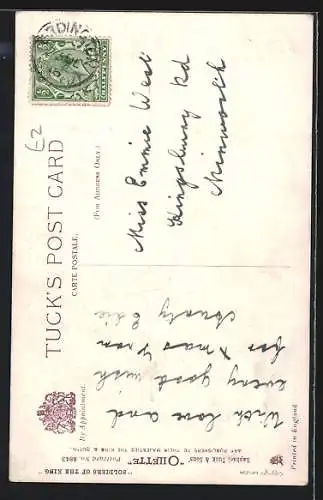 TUCK'S POST CARD
CARTE POSTALE.
(FOR ADDRESS ONLY.)
By Appointment.
With love and
every good wish
for Xmas from
Aunty Edie
Miss Emmie West
Kingsbury Rd
Minworth
Raphael Tuck & Sons' "OILETTE"
"SOLDIERS OF THE KING" Postcard No. 8843
ART PUBLISHERS TO THEIR MAJESTIES THE KING & QUEEN.
Printed in England.
£2